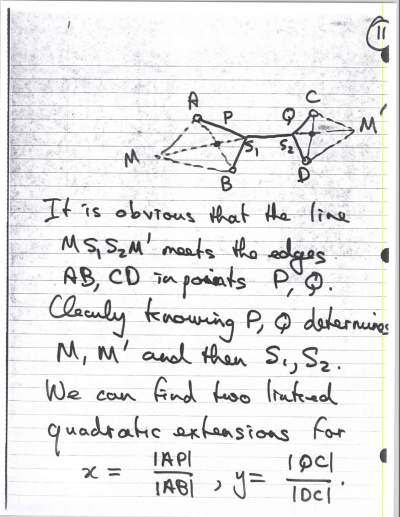 11
A
P
C
Q
M'
S1
S2
M
B
D
It is obvious that the line
MS1S2M' meets the edges
AB, CD in points P, Q.
Clearly knowing P, Q determines
M, M' and then S1, S2.
We can find two linked
quadratic extensions for
x = |AP| / |AB| , y = |QC| / |DC| .